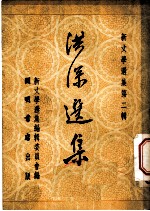 新文學選集第二輯
洪深選集
新文學選集編輯委員會編
開明書店出版